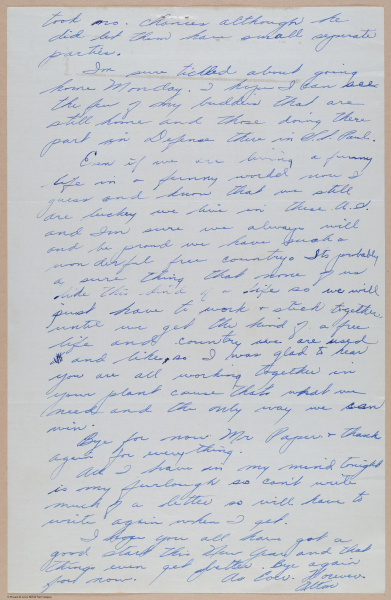 took no. chances although he
did let them have small seperate
parties.
I'm sure tickled about going
home Monday. I hope I can see
the few of my buddies that are
still home and those doing there
part in Defense there in St. Paul.
Even if we are living a funny
life in a funny world now I
guess and know that we still
are luckey we live in these U.S.
and I'm sure we always will
and be proud we have such a
wonderful free country. Its probably
a sure thing that none of us
like this kind of a life so we will
just have to work & stick together
until we get the kind of a free
life and country we are used
and like, so I was glad to hear
you are all working together in
your plant cause thats what we
need and the only way we can
win.
Bye for now Mr Paper & thank
again for everything.
All I have in my mind tonight
is my furlough so can't write
much of a letter so will have to
write again when I get.
I hope you all have got a
good start this New Year and that
things even get better. Bye again
for now. As Ever.